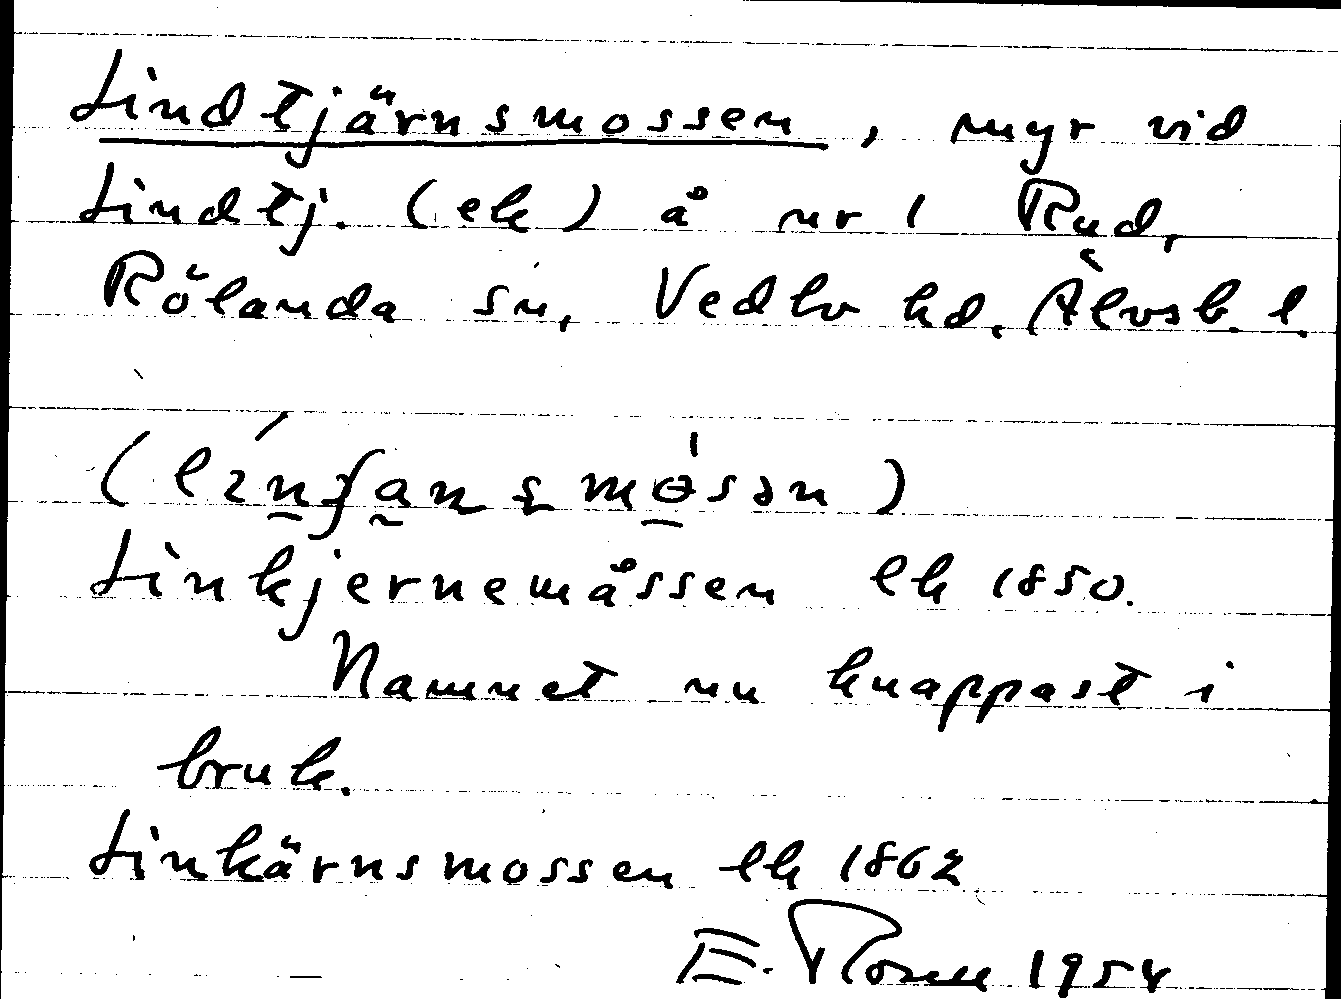 Lindtjärnsmossen, myr vid
Lindtj. (ek) å nr 1 Rud,
Rölanda sn, Vedbo hd. Älvsb. l.
Linkjernemåssen lk 1850.
Namnet nu knappast i
bruk.
Linkärnsmossen lk 1862
E. 1954